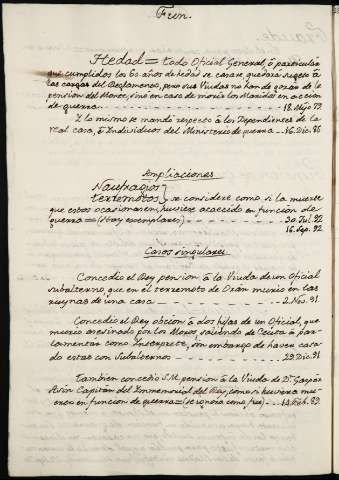 Fun.
Hedad = todo Oficial General, ó particular
que cumplidos los 60 años de hedad se casare quedará sugeto á
las cargas del Reglamento, pero sus Viudas no han de gozar de la
pension del Monte, sinó en caso de morir los Maridos en accion
de guerra 18. Mayo 79
Y lo mismo se mandó respecto á los Dependientes de la
real casa, é Individuos del Ministerio de guerra 16. Dic. 96
Ampliaciones
Naufragios
terremotos } se considere como si la muerte
que estos ocasionaren huviere acaecido en funcion de
guerra = (Hay exemplares) 30. Jul. 92
16. Sep. 92
Casos singulares
Concedio el Rey pension á la Viuda de un Oficial
subalterno que en el terremoto de Orán murio en las
ruynas de una casa 2. Nov. 91
Concedio el Rey opcion á dos hijas de un Oficial, que
murio asesinado por los Moros saliendo de Ceuta á par-
lamentar como Interprete, sin embargo de haver casa-
do estas con Subalternos 29. Dic. 91
tambien concedio S.M. pension á la Viuda de Dn. Gaspar
Asin Capitan del Immemorial del Rey, como si huviera mu-
erto en funcion de guerra = (se ignora como fue) 14. Feb. 89